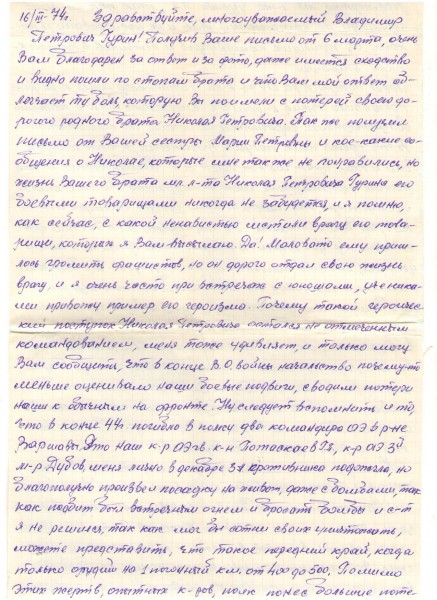 16/III-74г. Здравствуйте, многоуважаемый Владимир
Петрович Гурин! Получив Ваше письмо от 6 марта, очень
Вам благодарен за ответ и за фото, даже имеется сходство
и видно пошли по стопам брата и что Вам мой ответ об-
легчает ту боль, которую Вы понесли с потерей своего до-
рогого родного брата Николая Петровича. Так же получил
письмо от Вашей сестры Марии Петровны и кое-какие со-
общения о Николае, которые мне также не понравились, но
жизнь Вашего брата мл. л-та Николая Петровича Гурина его
боевыми товарищами никогда не забудется, и я помню,
как сейчас, с какой ненавистью мстили врагу его това-
рищи, которых я Вам высылаю. Да! Маловато ему приш-
лось громить фашистов, но он дорого отдал свою жизнь
врагу, и я очень часто при встречах с юношами, ученика-
ми привожу пример его героизма. Почему такой героичес-
кий поступок Николая Петровича остался не отмеченным
командованием, меня тоже удивляет, и только могу
Вам сообщить, что в конце В.О. войны начальство почему-то
меньше оценивало наши боевые подвиги, сводили потери
наши к обычным на фронте. Ну следует вспомнить и то,
что в конце 44г. погибло в полку два командира АЭ в р-не
Варшавы. Это наш к-р АЭ гв. к-н Потаскаев, к-р АЭ 3й
м-р Дубов, меня лично в декабре зл. противника подожгла, но
благополучно произвел посадку на живот, даже с бомбами, так
как подбит был встречным огнем и бросать бомбы и с-т
я не решился, так как мог бы сотни своих уничтожить,
можете представить, что такое передний край, когда
только орудий на 1 погонный км. от 400 до 500. Помимо
этих жертв, опытных к-ров, полк понес большие поте-